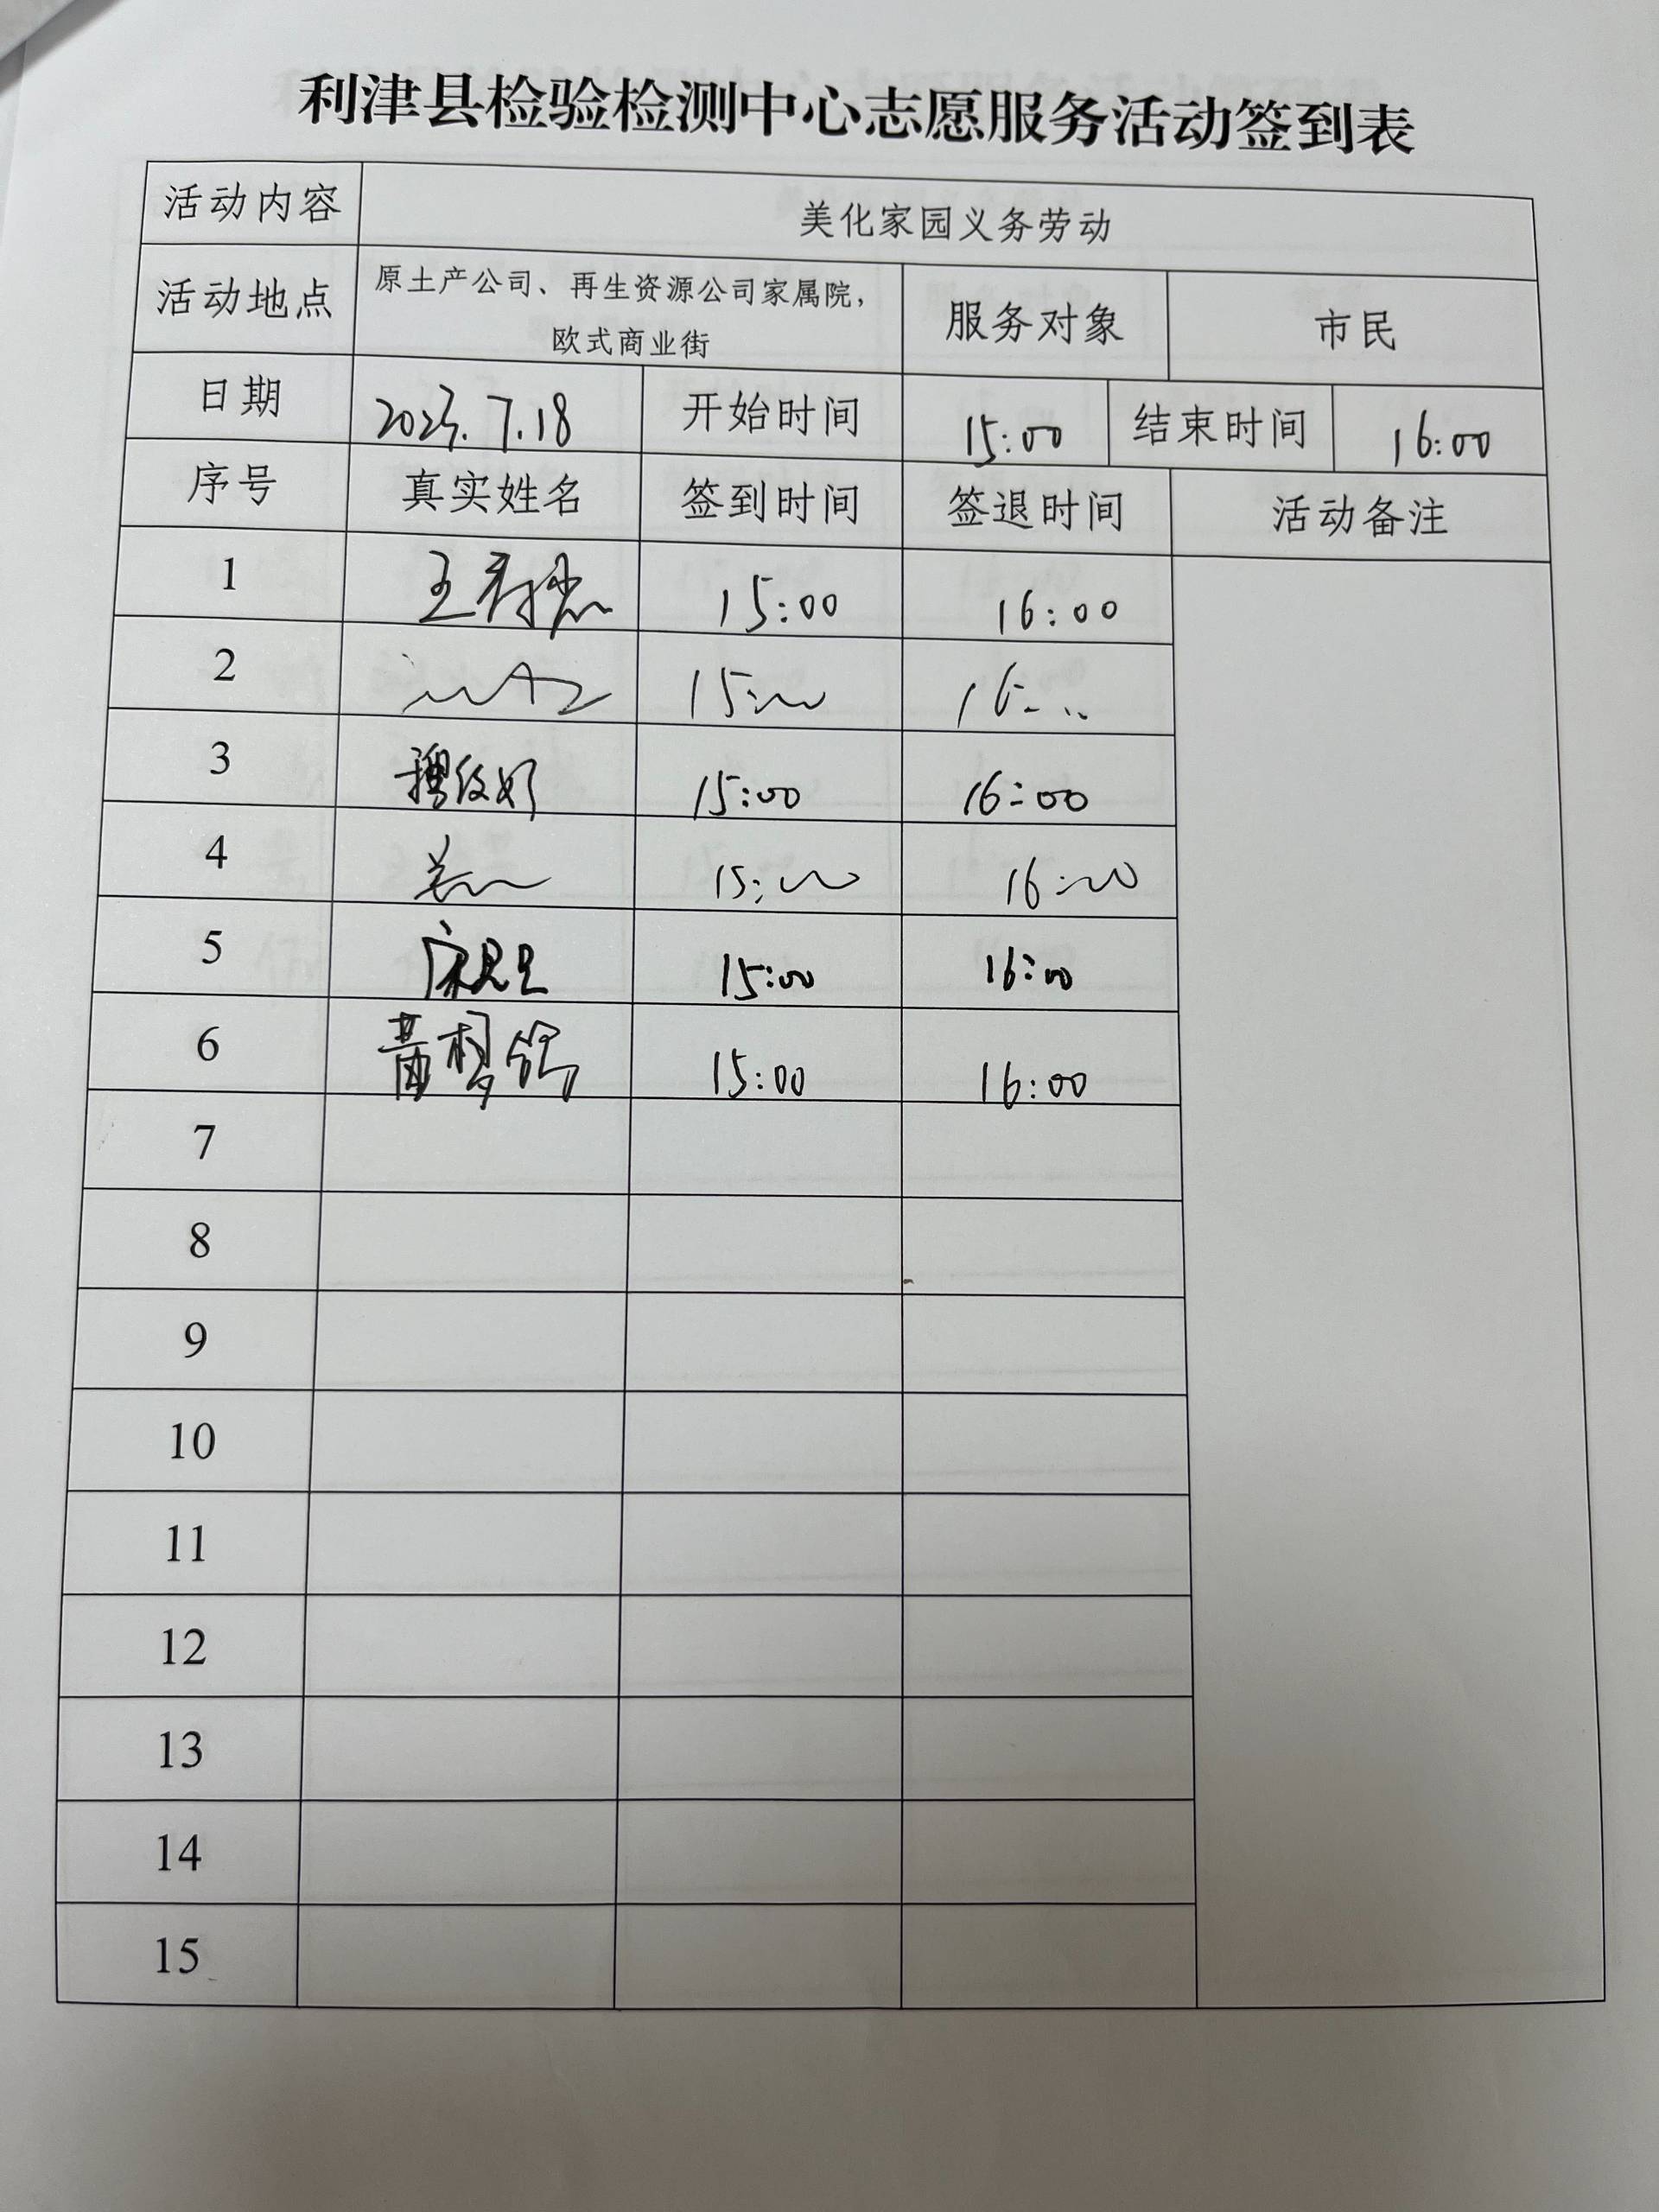 利津县检验检测中心志愿服务活动签到表
活动内容 美化家园义务劳动
活动地点 原土产公司、再生资源公司家属院，
欧式商业街 服务对象 市民
日期 2023.7.18 开始时间 15:00 结束时间 16:00
序号 真实姓名 签到时间 签退时间 活动备注
1 王 15:00 16:00
2 15:00 16:00
3 15:00 16:00
4 15:00 16:00
5 15:00 16:00
6 黄 15:00 16:00
7
8
9
10
11
12
13
14
15